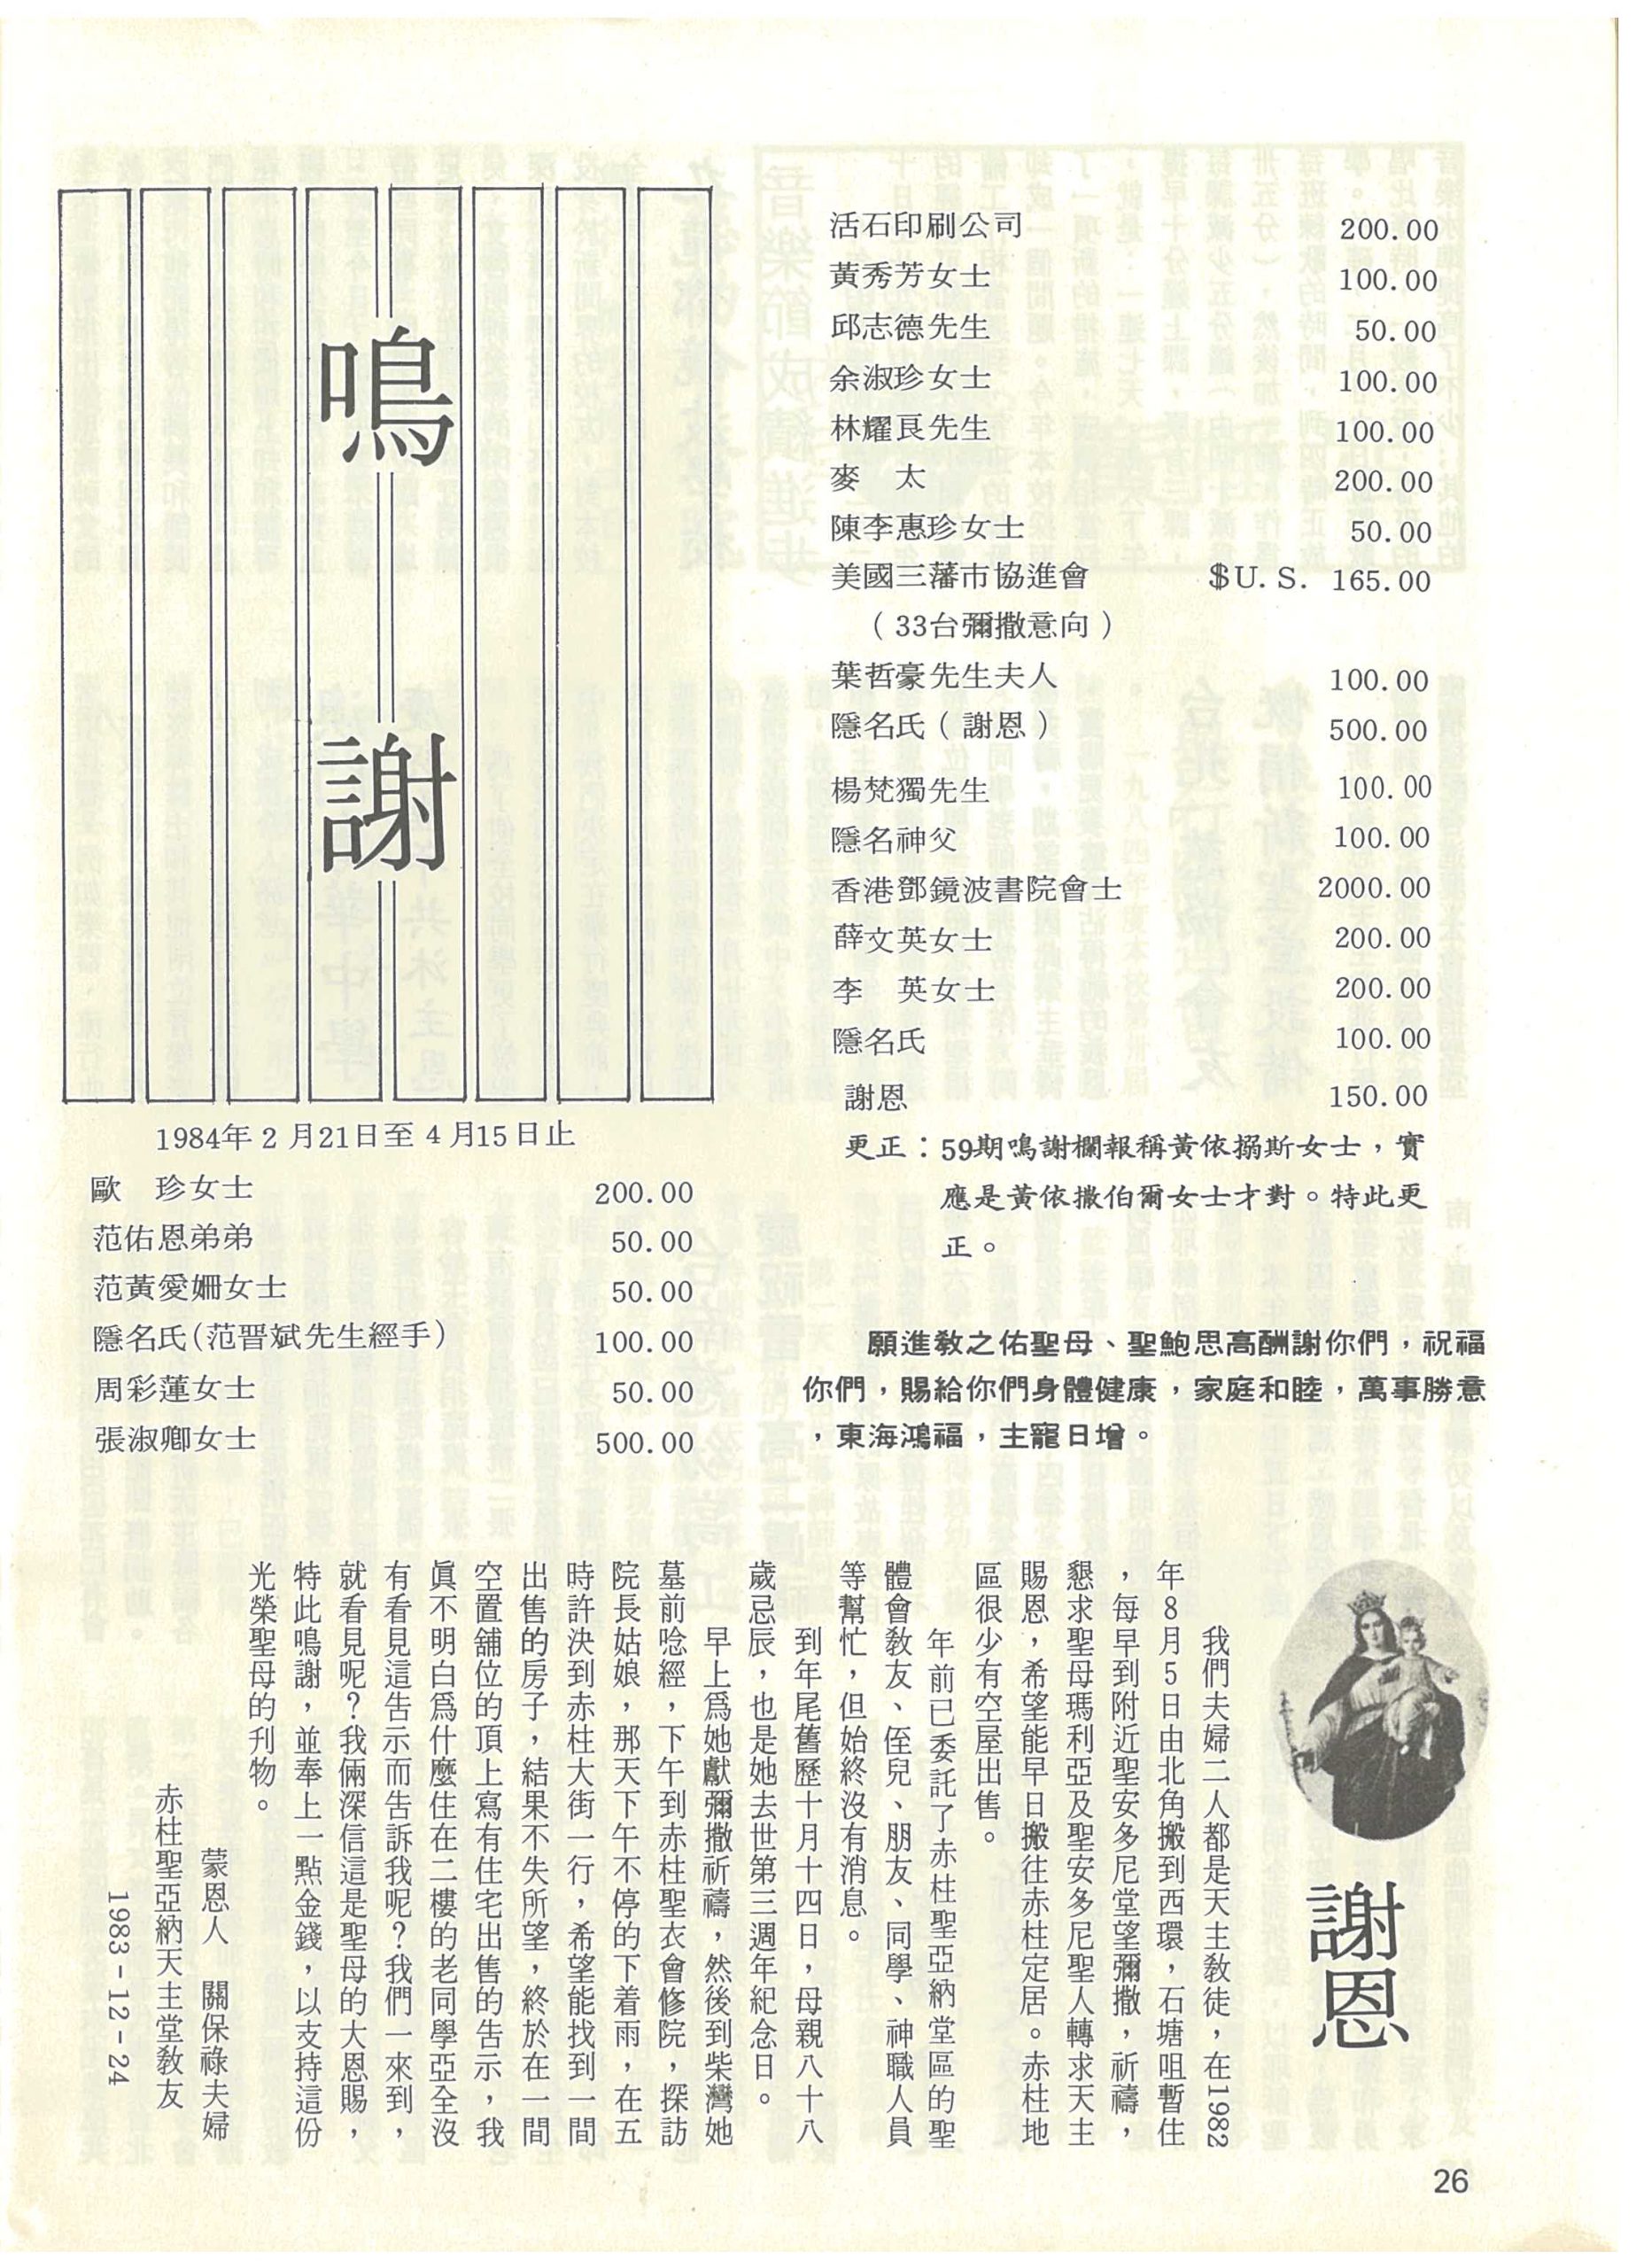 鳴謝
1984年2月21日至4月15日止
歐　珍女士 200.00
范佑恩弟弟 50.00
范黃愛姍女士 50.00
隱名氏(范晋斌先生經手) 100.00
周彩蓮女士 50.00
張淑卿女士 500.00
活石印刷公司 200.00
黃秀芳女士 100.00
邱志德先生 50.00
余淑珍女士 100.00
林耀良先生 100.00
麥　太 200.00
陳李惠珍女士 50.00
美國三藩市協進會 $U.S. 165.00
（33台彌撒意向）
葉哲豪先生夫人 100.00
隱名氏（謝恩） 500.00
楊梵獨先生 100.00
隱名神父 100.00
香港鄧鏡波書院會士 2000.00
薛文英女士 200.00
李　英女士 200.00
隱名氏 100.00
謝恩 150.00
更正：59期鳴謝欄報稱黃依搦斯女士，實
應是黃依撒伯爾女士才對。特此更
正。
願進敎之佑聖母、聖鮑思高酬謝你們，祝福
你們，賜給你們身體健康，家庭和睦，萬事勝意
，東海鴻福，主寵日增。
謝恩
我們夫婦二人都是天主敎徒，在1982
年8月5日由北角搬到西環，石塘咀暫住
，每早到附近聖安多尼堂望彌撒，祈禱，
懇求聖母瑪利亞及聖安多尼聖人轉求天主
賜恩，希望能早日搬往赤柱定居。赤柱地
區很少有空屋出售。
年前已委託了赤柱聖亞納堂區的聖
體會敎友、侄兒、朋友、同學、神職人員
等幫忙，但始終沒有消息。
到年尾舊歷十月十四日，母親八十八
歲忌辰，也是她去世第三週年紀念日。
早上爲她獻彌撒祈禱，然後到柴灣她
墓前唸經，下午到赤柱聖衣會修院，探訪
院長姑娘，那天下午不停的下着雨，在五
時許決到赤柱大街一行，希望能找到一間
出售的房子，結果不失所望，終於在一間
空置舖位的頂上寫有住宅出售的告示，我
眞不明白爲什麼住在二樓的老同學亞全沒
有看見這告示而告訴我呢？我們一來到，
就看見呢？我倆深信這是聖母的大恩賜，
特此鳴謝，並奉上一點金錢，以支持這份
光榮聖母的刋物。
蒙恩人　關保祿夫婦
赤柱聖亞納天主堂敎友
1983-12-24
26